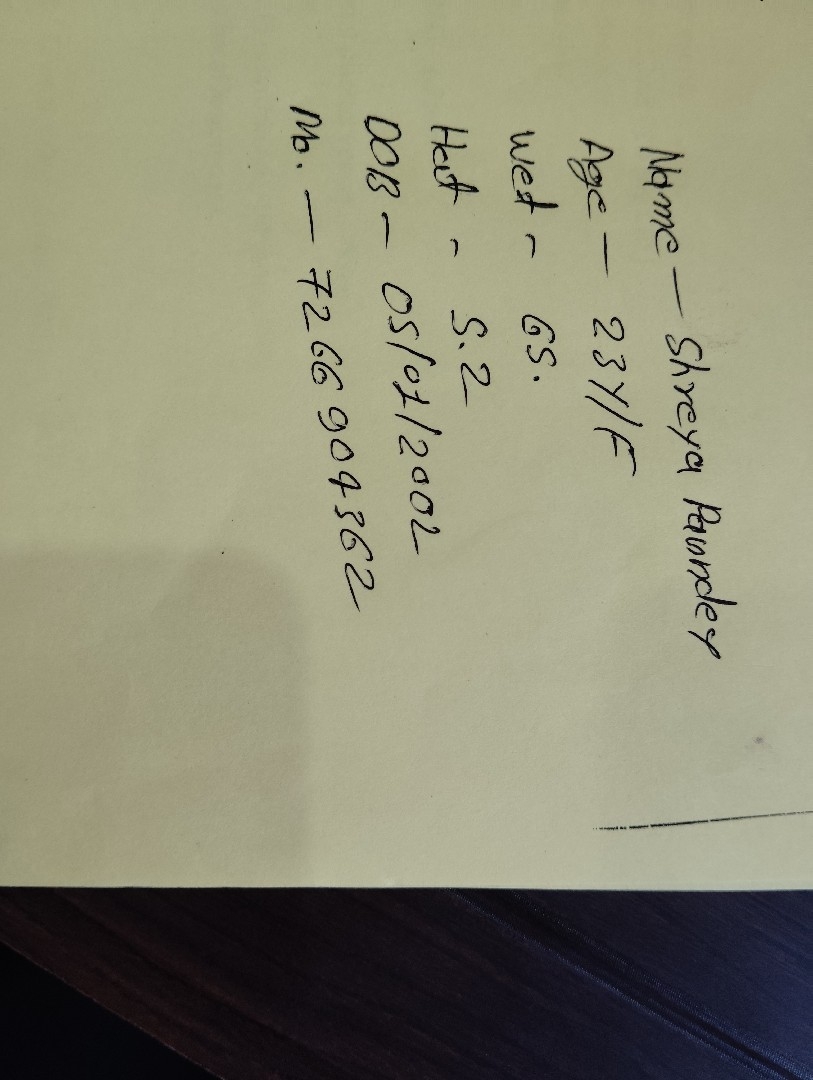 Name - Shreya Paunder
Age - 23Y/F
Wet - 65.
Het - 5.2
DOB - 05/07/2002
Mo. - 7266904362